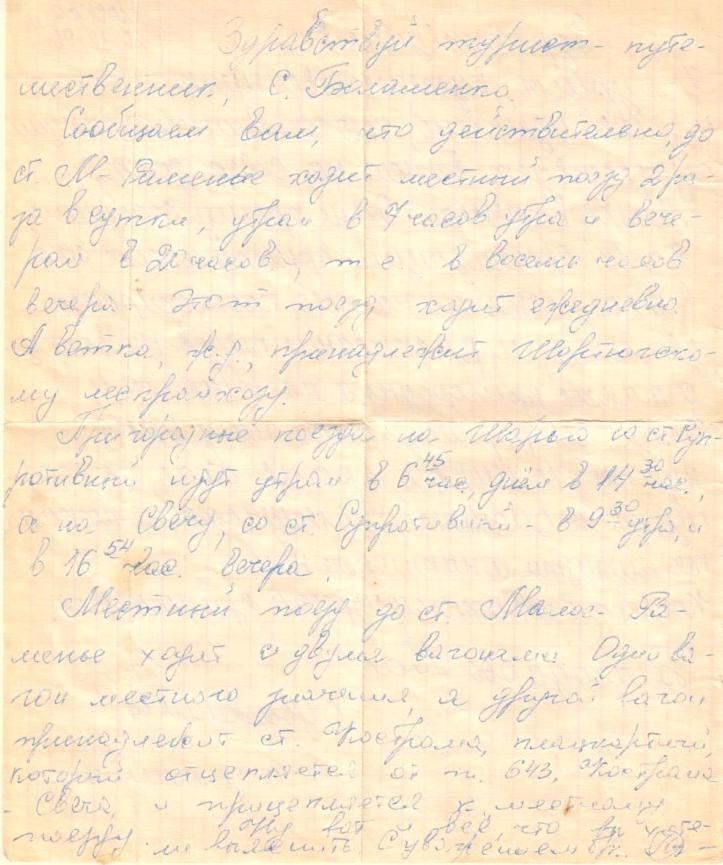 Здравствуй турист- путе-
шественник, С. Болашенко.
Сообщаем Вам, что действительно, до
ст. М-Раменье ходит местный поезд 2 ра-
за в сутки, утром в 7 часов утра и вече-
ром в 20 часов, т.е. в восемь часов
вечера. Этот поезд ходит ежедневно.
А ветка, ж.д., принадлежит Шортюгско-
му леспромхозу.
Пригородные поезда на Шарью со ст. Суп-
ротивный идут утром в 6 45 час, днём в 14 30 час.,
а на Свечу, со ст. Супротивный - в 9 30 утра, и
в 16 54 час. вечера.
Местный поезд до ст. Малое- Ра-
менье ходит с двумя вагонами. Один ва-
гон местного значения, а другой вагон
принадлежит ст. Кострома, плацкартный,
который отцепляется от п. 643, Кострома
- Свеча, и прицепляется к местному
поезду. Ну вот и всё, что вы хоте-
ли выяснить С уважением